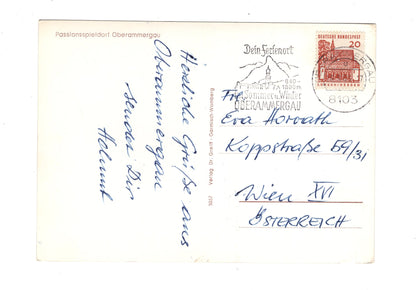 Passionsspieldorf Oberammergau
Herzliche Grüße aus
Oberammergau
sendet Dir
Helmut
Dein Ferienort
840-
Sommer u. Winter
OBERAMMERGAU
DEUTSCHE BUNDESPOST
20
8103
Frau
Eva Horvath
Koppstraße 59/31
Wien XVI
ÖSTERREICH